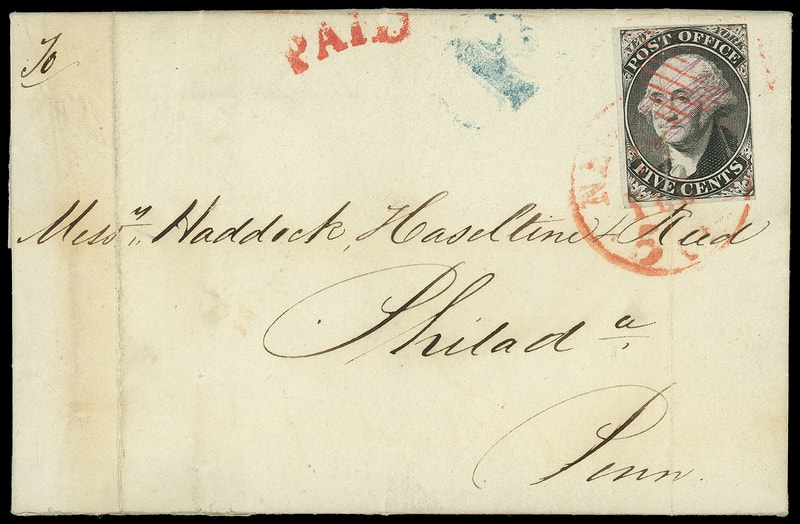 To
PAID
POST OFFICE
FIVE CENTS
Messrs Haddock, Haseltine & Reed
Philada
Penn.